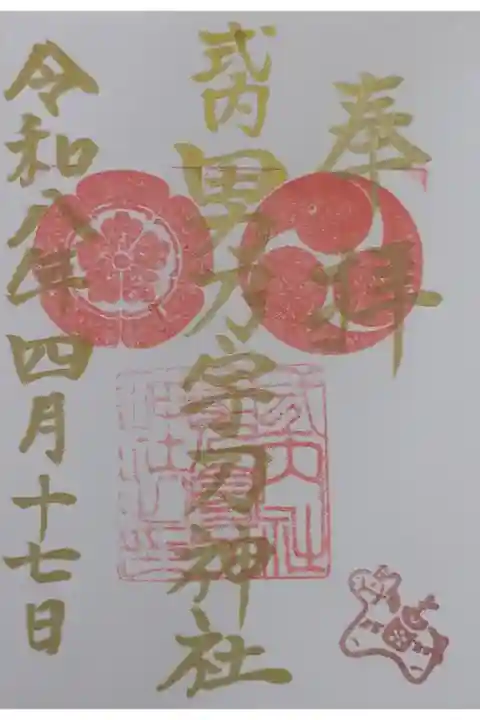 奉拝
式内
男乃宇刀神社
令和八年四月十七日